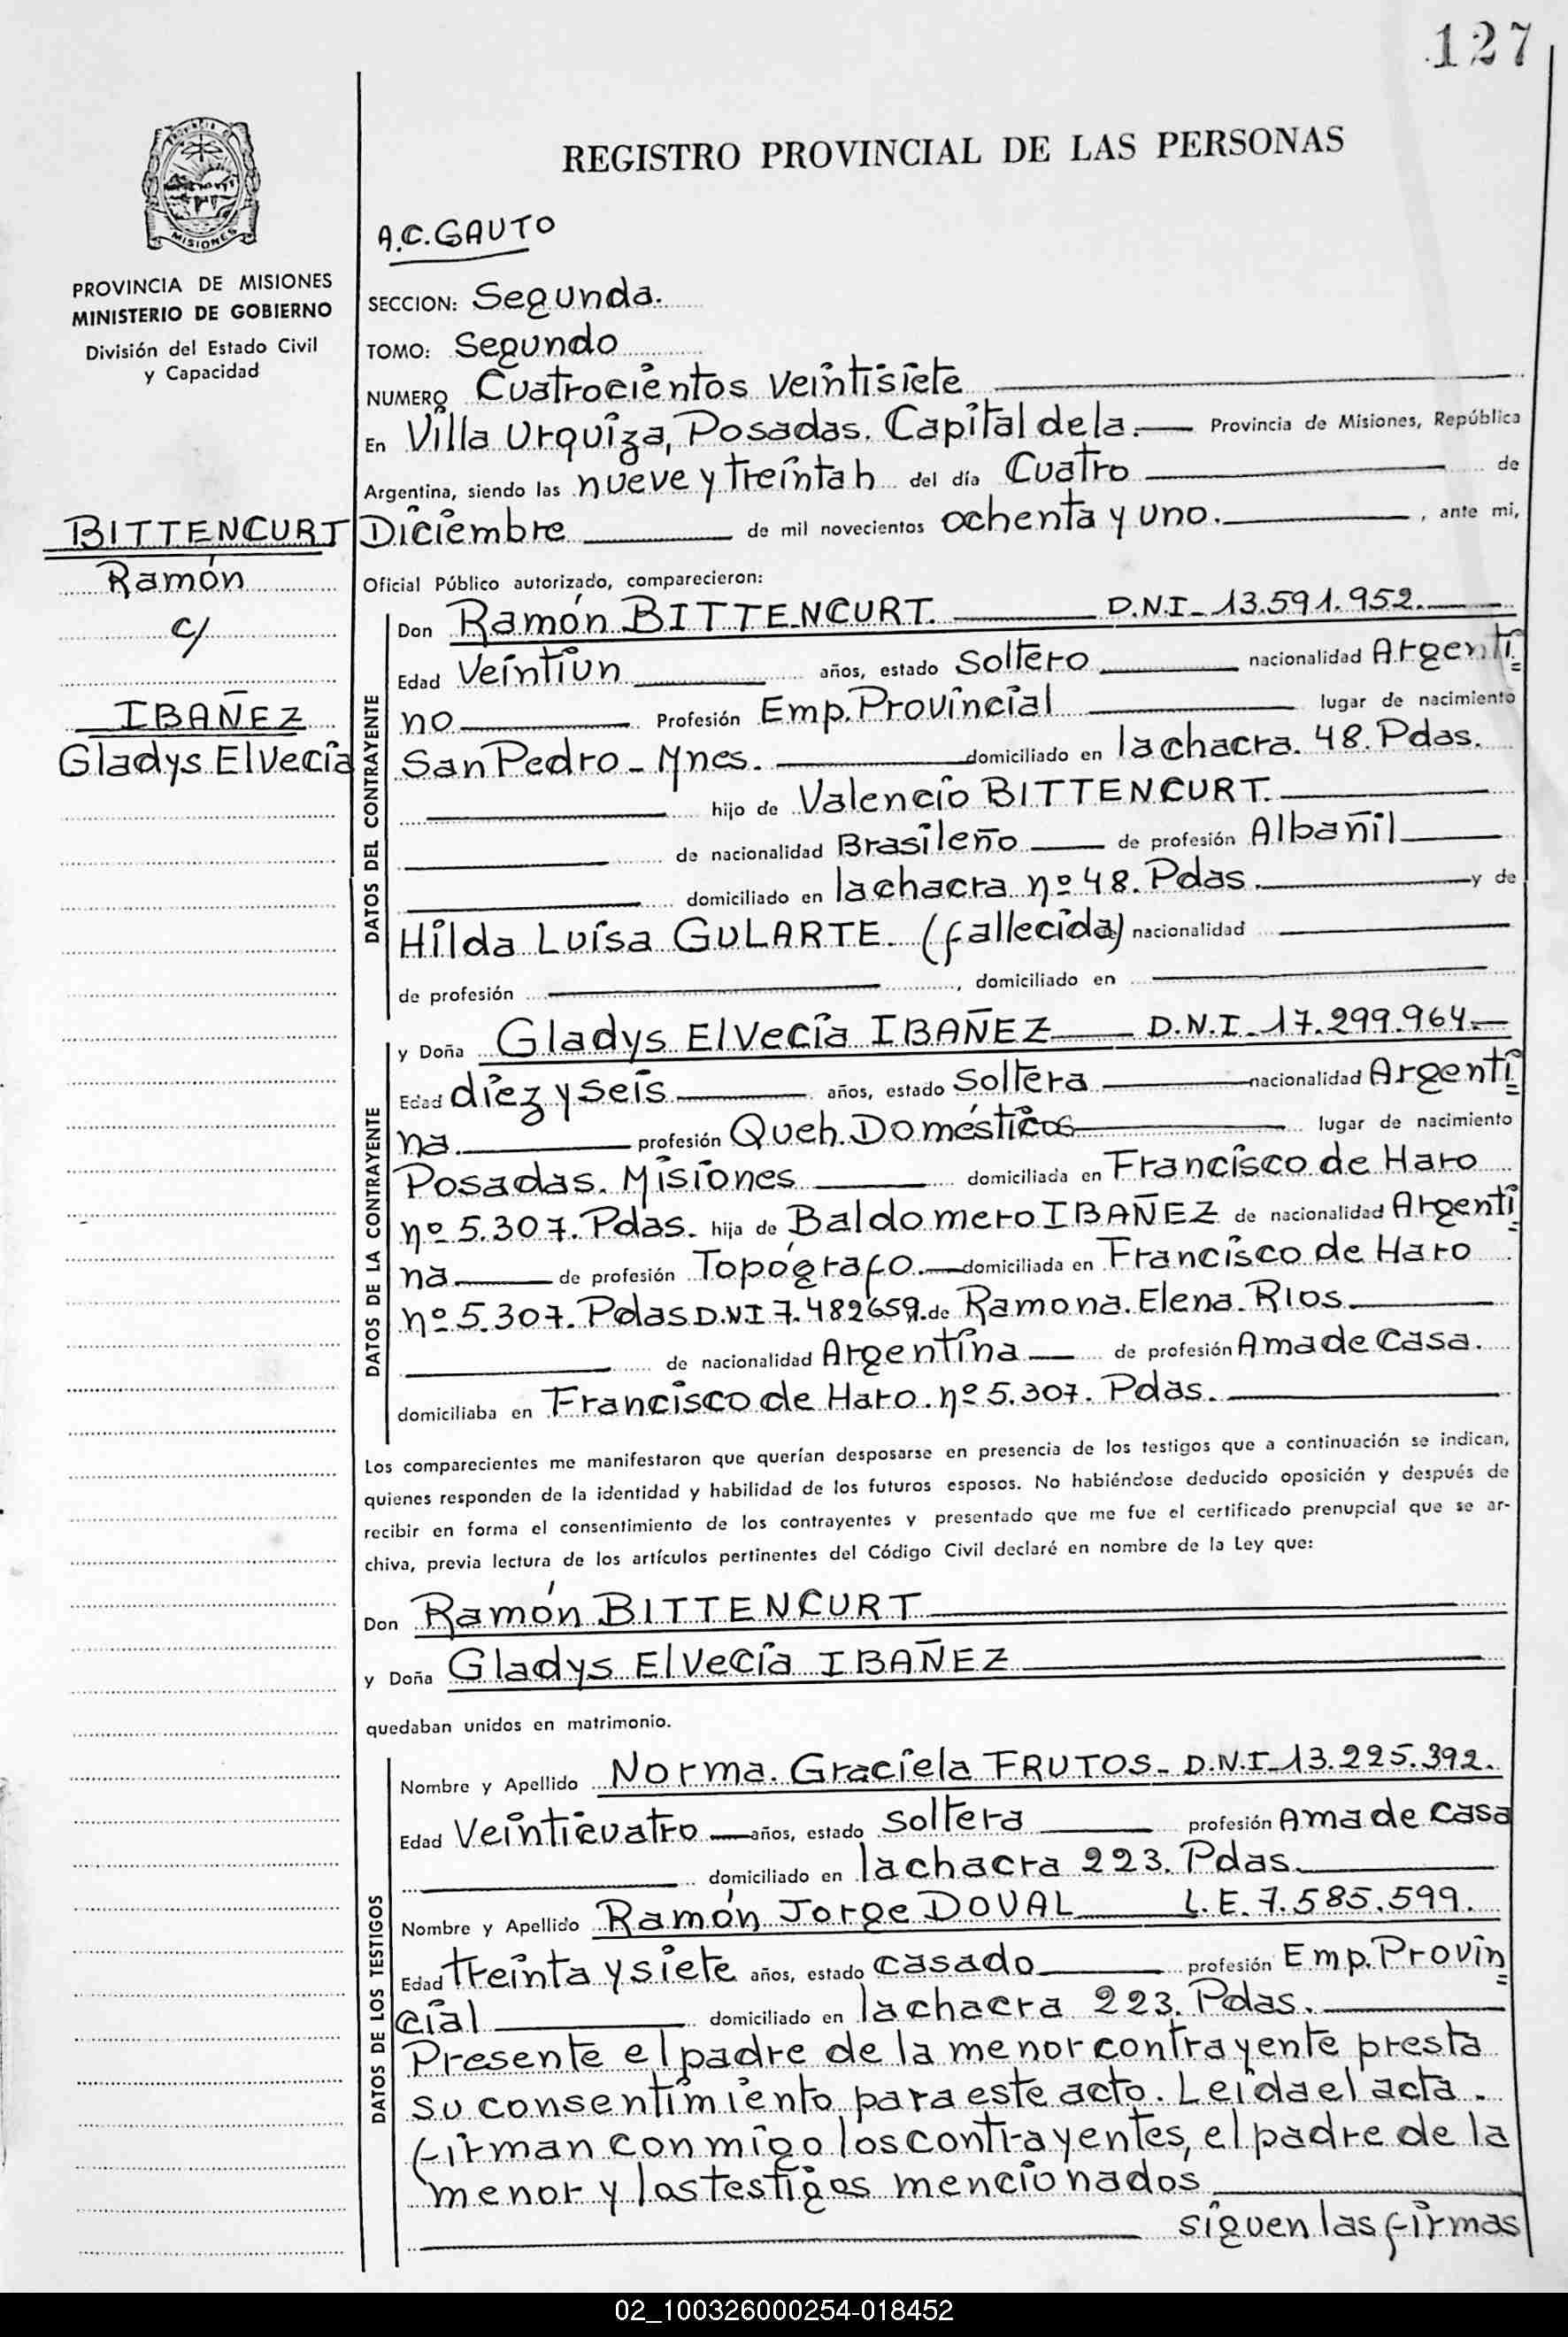 127
REGISTRO PROVINCIAL DE LAS PERSONAS
MISIONES
PROVINCIA DE MISIONES
MINISTERIO DE GOBIERNO
División del Estado Civil
y Capacidad
BITTENCURT
Ramón
c/
IBAÑEZ
Gladys Elvecia
A.C. GAUTO
SECCION: Segunda.
TOMO: Segundo
NUMERO Cuatrocientos veintisiete
En Villa Urquiza, Posadas. Capital de la.— Provincia de Misiones, República
Argentina, siendo las nueve y treinta h del día Cuatro de
Diciembre de mil novecientos ochenta y uno. , ante mi,
Oficial Público autorizado, comparecieron:
DATOS DEL CONTRAYENTE
Don Ramón BITTENCURT. D.N.I_13.591.952.
Edad Veintiun años, estado Soltero nacionalidad Argenti=
no Profesión Emp. Provincial lugar de nacimiento
San Pedro - Mnes. domiciliado en la chacra. 48. Pdas.
hijo de Valencio BITTENCURT.
de nacionalidad Brasileño de profesión Albañil
domiciliado en la chacra nº 48. Pdas. y de
Hilda Luisa GULARTE. (fallecida) nacionalidad
de profesión , domiciliado en
DATOS DE LA CONTRAYENTE
y Doña Gladys Elvecia IBAÑEZ D.N.I_17.299.964.
Edad diez y seis años, estado Soltera nacionalidad Argenti=
na. profesión Queh. Domésticos lugar de nacimiento
Posadas. Misiones domiciliada en Francisco de Haro
nº 5.307. Pdas. hija de Baldomero IBAÑEZ de nacionalidad Argenti=
na de profesión Topógrafo. domiciliada en Francisco de Haro
nº 5.307. Pdas D.N.I 7.482659. de Ramona. Elena. RIOS.
de nacionalidad Argentina de profesión Ama de Casa.
domiciliaba en Francisco de Haro. nº 5.307. Pdas.
Los comparecientes me manifestaron que querían desposarse en presencia de los testigos que a continuación se indican,
quienes responden de la identidad y habilidad de los futuros esposos. No habiéndose deducido oposición y después de
recibir en forma el consentimiento de los contrayentes y presentado que me fue el certificado prenupcial que se ar-
chiva, previa lectura de los artículos pertinentes del Código Civil declaré en nombre de la Ley que:
Don Ramón BITTENCURT
y Doña Gladys Elvecia IBAÑEZ
quedaban unidos en matrimonio.
DATOS DE LOS TESTIGOS
Nombre y Apellido Norma. Graciela FRUTOS_ D.N.I_13.225.392.
Edad Veinticuatro años, estado soltera profesión Ama de casa
domiciliado en la chacra 223. Pdas.
Nombre y Apellido Ramón Jorge DOVAL L.E. 7.585.599.
Edad treinta y siete años, estado casado profesión Emp. Provin=
cial domiciliado en la chacra 223. Pdas.
Presente el padre de la menor contrayente presta
su consentimiento para este acto. Leida el acta.
firman conmigo los contrayentes, el padre de la
menor y los testigos mencionados
siguen las firmas
02_100326000254-018452